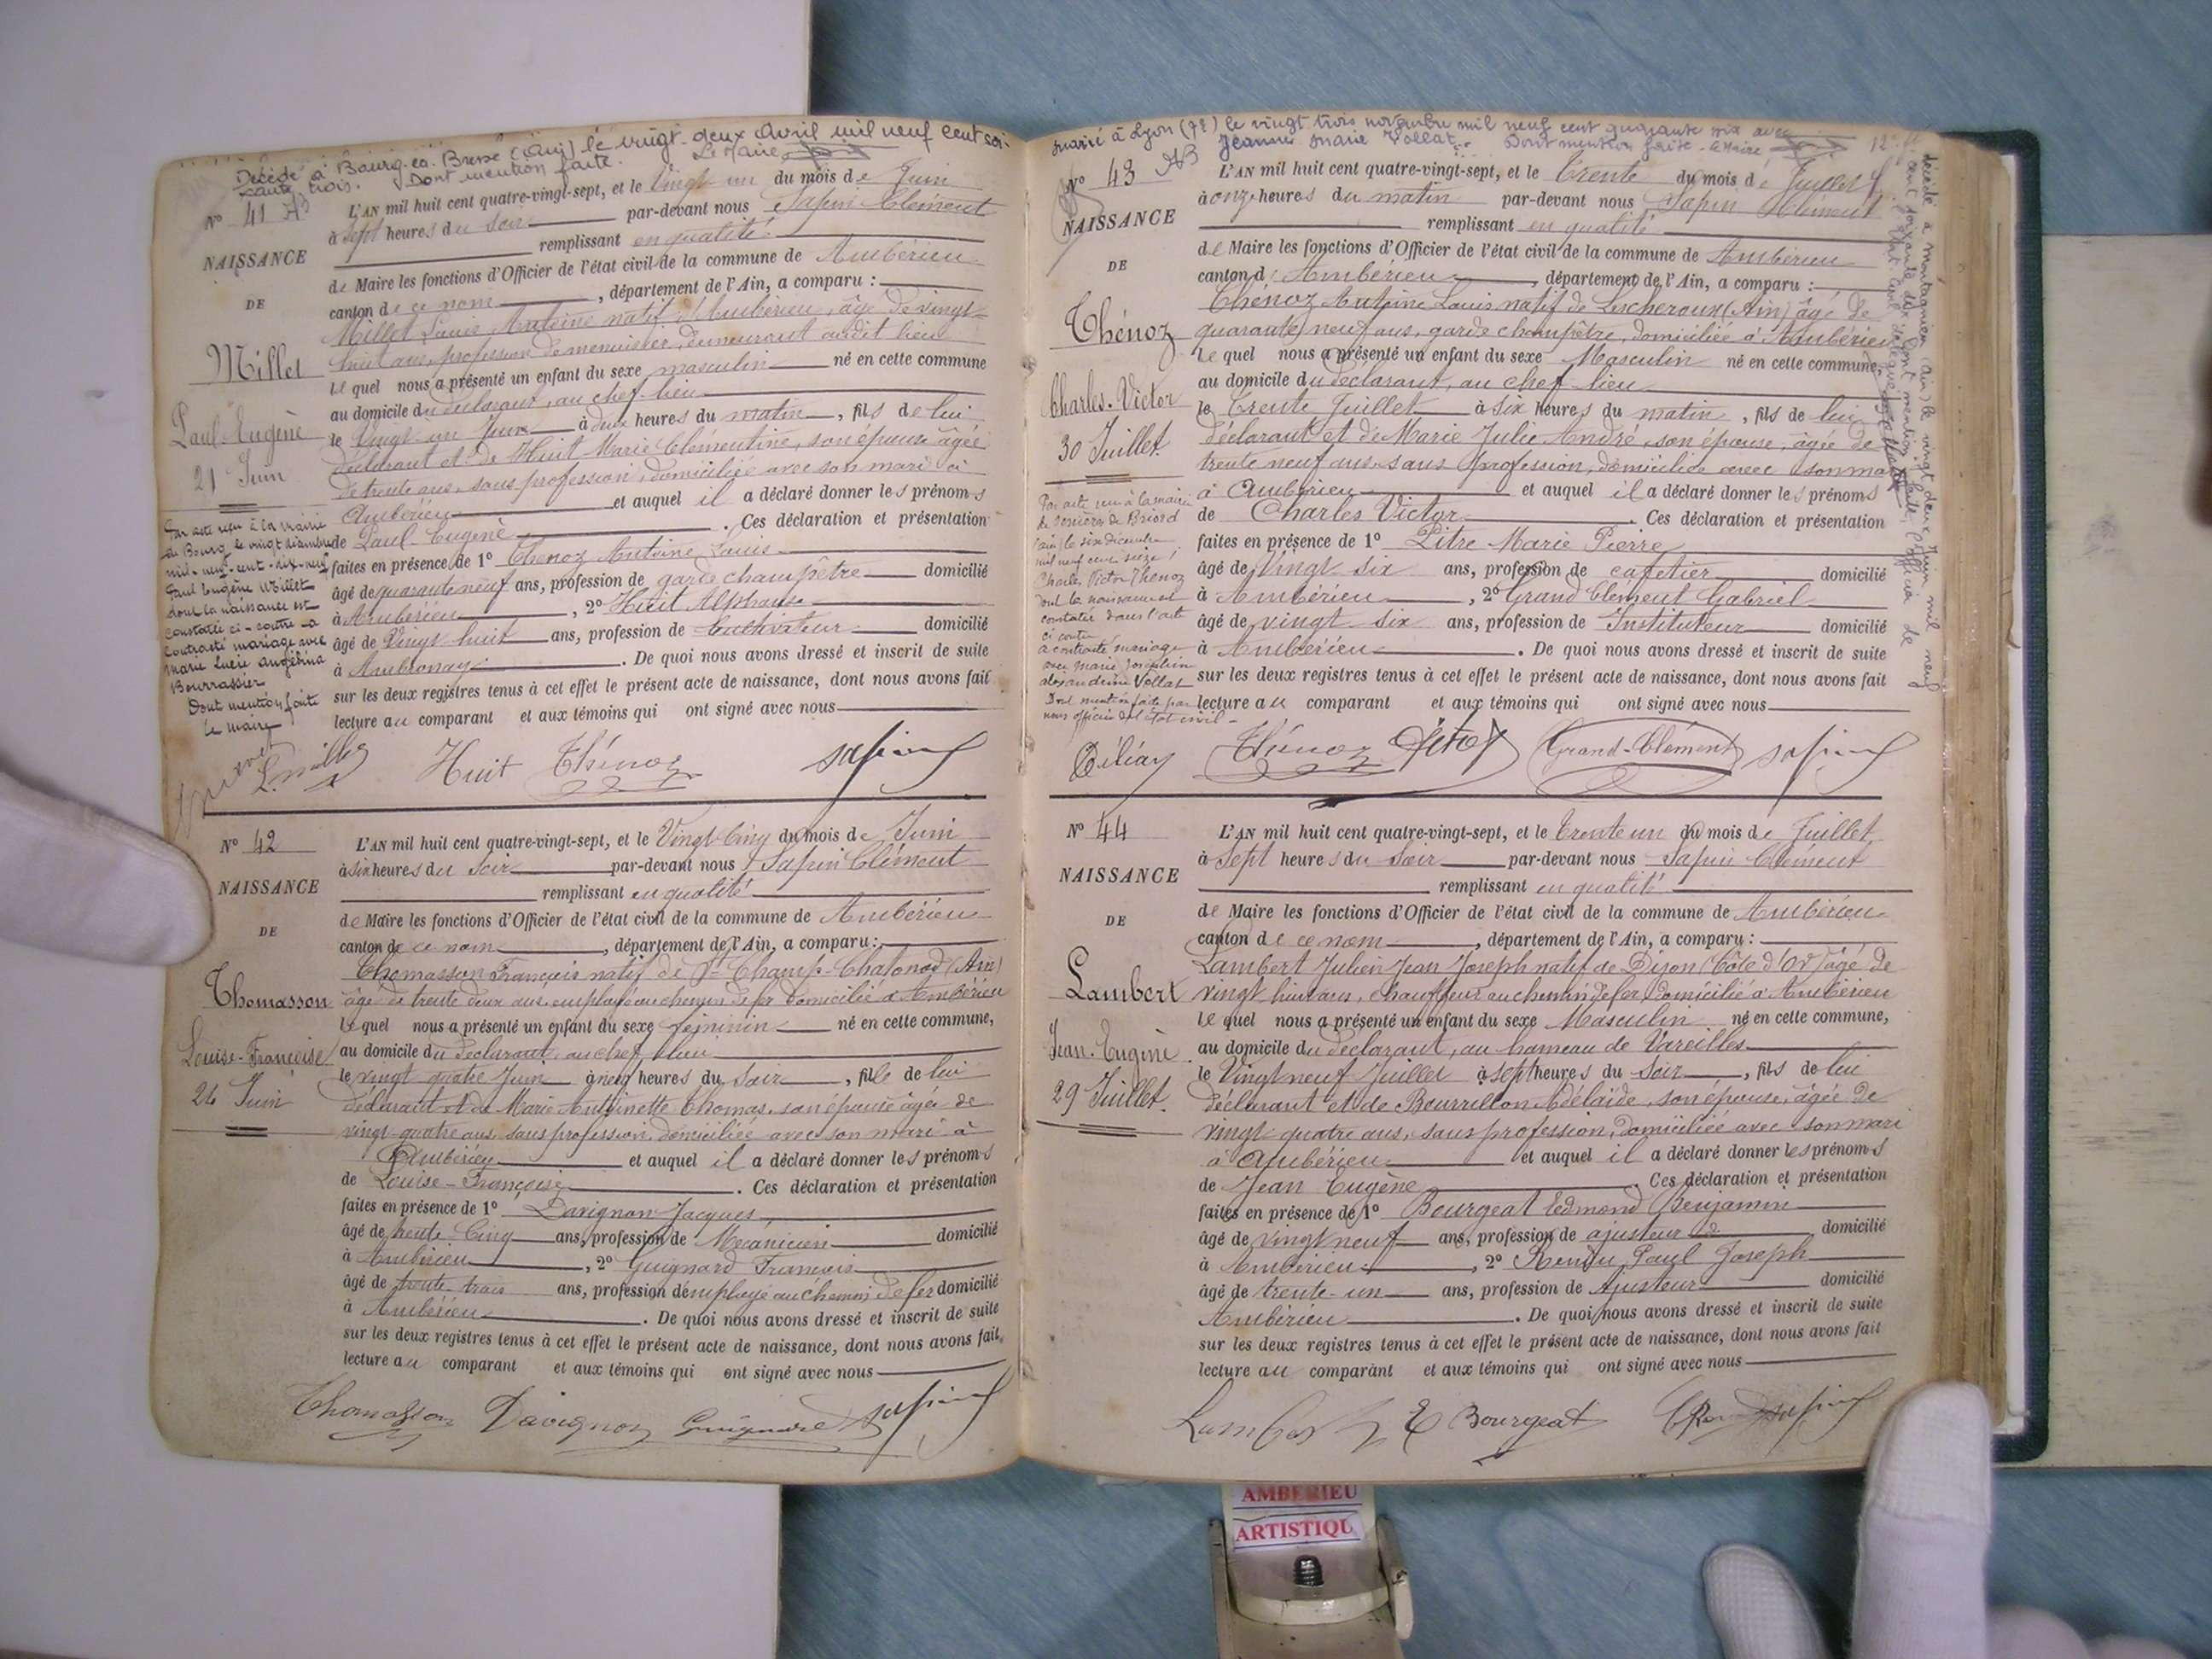 Décédé à Bourg-en-Bresse (Ain) le vingt-deux Avril mil neuf cent soi-
xante trois. Dont mention faite. Le Maire
N° 41
NAISSANCE
DE
Millet
Paul Eugène
21 Juin
L'AN mil huit cent quatre-vingt-sept, et le Vingt un du mois de Juin
à sept heures du Soir par-devant nous Sapin Clément
remplissant en qualité
de Maire les fonctions d'Officier de l'état civil de la commune de Ambérieu
canton de ce nom, département de l'Ain, a comparu :
Millet Louis Antoine natif d'Ambérieu, âgé de vingt
huit ans, profession de menuisier, demeurant audit lieu
lequel nous a présenté un enfant du sexe masculin né en cette commune
au domicile du déclarant, au chef-lieu
le Vingt-un Juin à deux heures du matin, fils de lui
déclarant et de Huit Marie Clémentine, son épouse âgée
de trente ans, sans profession, domiciliée avec son mari à
Ambérieu et auquel il a déclaré donner les prénoms
de Paul-Eugène. Ces déclaration et présentation
faites en présence de 1° Thénoz Antoine Louis
âgé de quarante neuf ans, profession de garde champêtre domicilié
à Ambérieu, 2° Huit Alphonse
âgé de Vingt huit ans, profession de Cultivateur domicilié
à Ambronay. De quoi nous avons dressé et inscrit de suite
sur les deux registres tenus à cet effet le présent acte de naissance, dont nous avons fait
lecture au comparant et aux témoins qui ont signé avec nous
Par acte reçu à la mairie
de Bourg le vingt décembre
mil-neuf-cent-dix-neuf
Paul Eugène Millet
dont la naissance est
constatée ci-contre a
contracté mariage avec
Marie Lucie Angélina
Bourrassier
Dont mention faite
Le maire
L. Millet Huit Thénoz Sapin
N° 42
NAISSANCE
DE
Thomasson
Louise-Françoise
24 Juin
L'AN mil huit cent quatre-vingt-sept, et le Vingt Cinq du mois de Juin
à six heures du Soir par-devant nous Sapin Clément
remplissant en qualité
de Maire les fonctions d'Officier de l'état civil de la commune de Ambérieu
canton de ce nom, département de l'Ain, a comparu :
Thomasson François natif de St Champ-Chatonod (Ain)
âgé de trente deux ans, employé au chemin de fer domicilié à Ambérieu
lequel nous a présenté un enfant du sexe féminin né en cette commune,
au domicile du déclarant, au chef-lieu
le vingt quatre Juin à neuf heures du Soir, fille de lui
déclarant et de Marie Antoinette Thomas, son épouse âgée de
vingt-quatre ans, sans profession, domiciliée avec son mari à
Ambérieu et auquel il a déclaré donner les prénoms
de Louise-Françoise. Ces déclaration et présentation
faites en présence de 1° Davignon Jacques
âgé de trente Cinq ans, profession de Mécanicien domicilié
à Ambérieu, 2° Guignard François
âgé de trente trois ans, profession d'employé au chemin de fer domicilié
à Ambérieu. De quoi nous avons dressé et inscrit de suite
sur les deux registres tenus à cet effet le présent acte de naissance, dont nous avons fait
lecture au comparant et aux témoins qui ont signé avec nous
Thomasson Davignon Guignard Sapin
Marié à Lyon (7e) le vingt trois novembre mil neuf cent quarante six avec
Jeanne Marie Vollat. Dont mention faite. Le Maire
N° 43
NAISSANCE
DE
Thénoz
Charles-Victor
30 Juillet
L'AN mil huit cent quatre-vingt-sept, et le Trente du mois de Juillet
à onze heures du matin par-devant nous Sapin Clément
remplissant en qualité
de Maire les fonctions d'Officier de l'état civil de la commune de Ambérieu
canton d'Ambérieu, département de l'Ain, a comparu :
Thénoz Antoine Louis natif de Lescheroux (Ain) âgé de
quarante neuf ans, garde champêtre, domicilié à Ambérieu
lequel nous a présenté un enfant du sexe Masculin né en cette commune,
au domicile du déclarant, au chef-lieu
le Trente Juillet à six heures du matin, fils de lui
déclarant et de Marie Julie André, son épouse, âgée de
trente neuf ans, sans profession, domiciliée avec son mari
à Ambérieu et auquel il a déclaré donner les prénoms
de Charles Victor. Ces déclaration et présentation
faites en présence de 1° Pitre Marie Pierre
âgé de Vingt six ans, profession de cafetier domicilié
à Ambérieu, 2° Grand Clément Gabriel
âgé de vingt six ans, profession de Instituteur domicilié
à Ambérieu. De quoi nous avons dressé et inscrit de suite
sur les deux registres tenus à cet effet le présent acte de naissance, dont nous avons fait
lecture au comparant et aux témoins qui ont signé avec nous
Par acte reçu à la mairie
de Serrières de Briord
(Ain) le six décembre
mil neuf cent seize,
Charles Victor Thénoz
dont la naissance est
constatée dans l'acte
ci contre
a contracté mariage
avec Marie Joséphine
Alexandrine Vollat
Dont mention faite par
nous officier de l'état civil
décédé à Montagnieu (Ain) le vingt deux Juin mil neuf
cent soixante dix. Dont mention faite, l'officier de
l'état civil délégué
Thénoz Pitre Grand-Clément Sapin
N° 44
NAISSANCE
DE
Lambert
Jean-Eugène
29 Juillet
L'AN mil huit cent quatre-vingt-sept, et le Trente un du mois de Juillet
à sept heures du Soir par-devant nous Sapin Clément
remplissant en qualité
de Maire les fonctions d'Officier de l'état civil de la commune de Ambérieu
canton de ce nom, département de l'Ain, a comparu :
Lambert Julien Jean Joseph natif de Dijon (Côte d'Or) âgé de
vingt huit ans, chauffeur au chemin de fer, domicilié à Ambérieu
lequel nous a présenté un enfant du sexe Masculin né en cette commune,
au domicile du déclarant, au hameau de Vareilles
le Vingt neuf Juillet à sept heures du Soir, fils de lui
déclarant et de Bourrillon Adélaïde, son épouse, âgée de
vingt quatre ans, sans profession, domiciliée avec son mari
à Ambérieu et auquel il a déclaré donner les prénoms
de Jean Eugène. Ces déclaration et présentation
faites en présence de 1° Bourgeat Edmond Benjamin
âgé de vingt neuf ans, profession de ajusteur domicilié
à Ambérieu, 2° Rendu Paul Joseph
âgé de trente-un ans, profession de Ajusteur domicilié
Ambérieu. De quoi nous avons dressé et inscrit de suite
sur les deux registres tenus à cet effet le présent acte de naissance, dont nous avons fait
lecture au comparant et aux témoins qui ont signé avec nous
Lambert E Bourgeat Sapin
AMBERIEU
ARTISTIQU